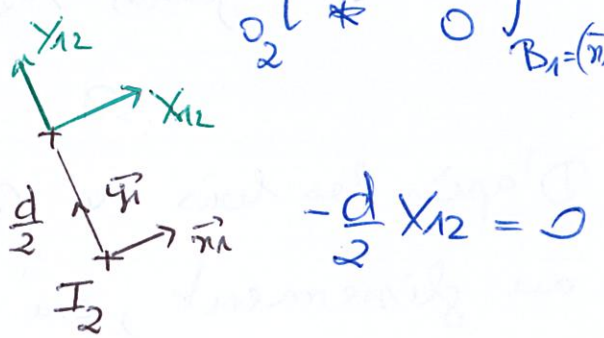 Y12
X12
O2 { * 0 } B1=(x
d/2 y1
x1
I2
-d/2 X12 = 0